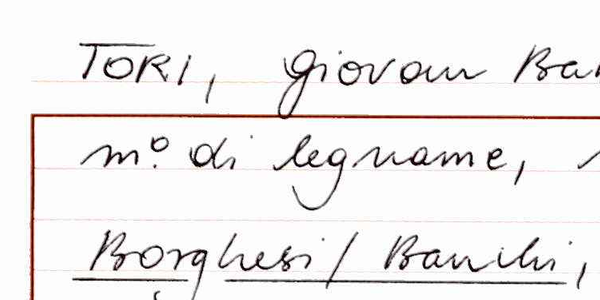 TORI, Giovan
m.º di legname,
Borghesi / Banchi,